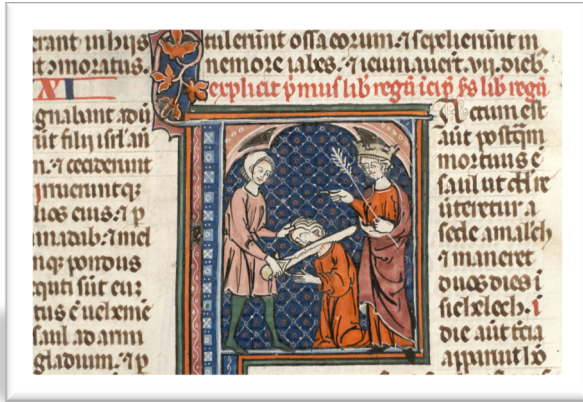 erant in hijs
moratus.
XI
gnabant adū
ūt filij isrl' an
n. ⁊ ceciderunt
irrueruntqz
lios eius. ⁊ p
inadab. ⁊ mel
nqz pondus
cuti sūt eum
tus ē uehemē
saul ad armi
gladium. ⁊ p
tulerunt ossa eorum. ⁊ sepelierunt in
nemore iabes. ⁊ ieiunauert̄. vij. dieb'
explicit p̄mus lib̄ regū īcip̄ s̄s lib̄ regū
actum est
aūt postq̄m
mortuus ē
saul ut dd re
uteretur a
cede amalech
⁊ maneret
duos dies ī
sichelech. ī
die aūt t̄cia
apparuit hō